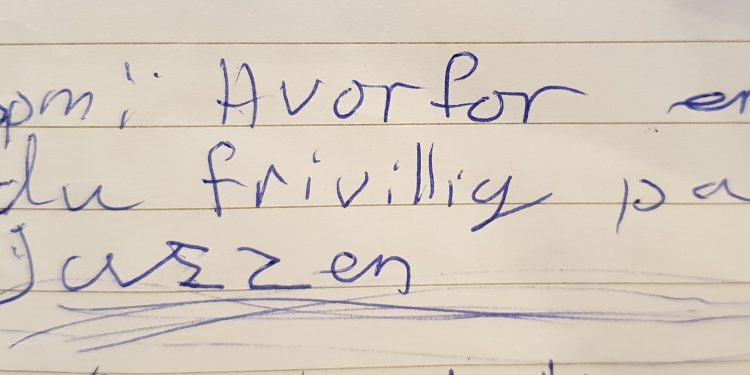 Hvorfor er
du frivillig pa
Jazzen